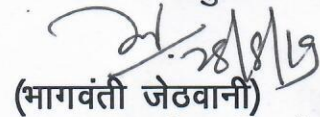 28/8/19
(भागवंती जेठवानी)